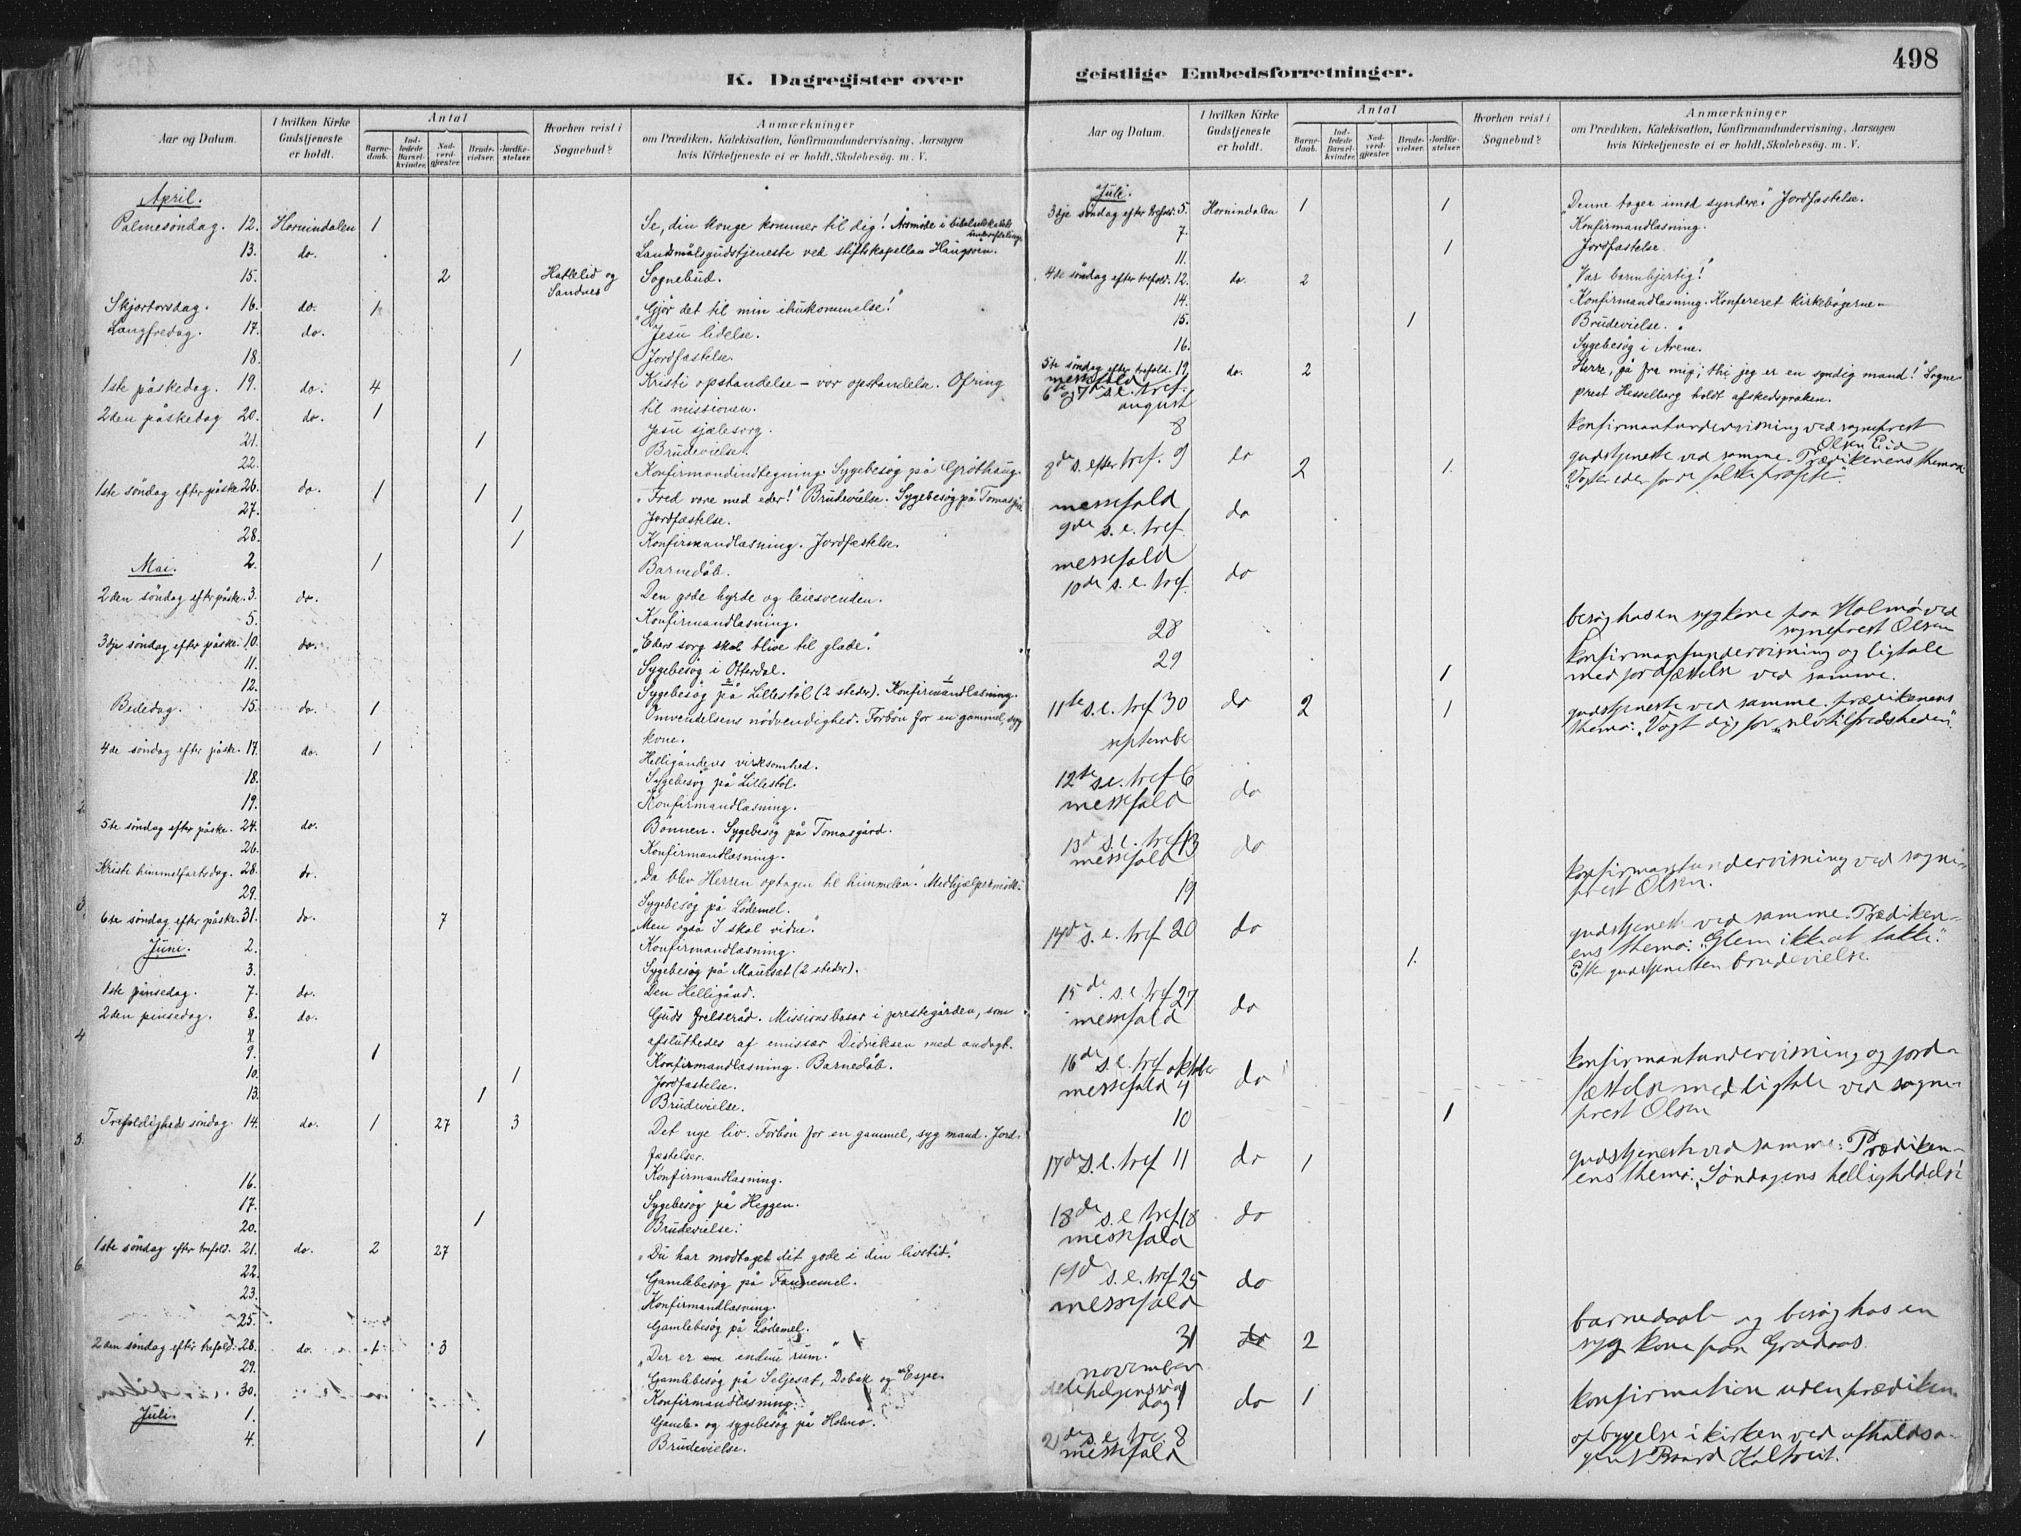 498
K. Dagregister over
geistlige Embedsforretninger.
Aar og Datum.
I hvilken Kirke Gudstjeneste er holdt.
Antal
Barnedaab.
Indledede Barselkvinder.
Nadverdgjester.
Brudevielser.
Jordfæstelser.
Hvorhen reist i Sognebud?
Anmærkninger
om Prædiken, Katekisation, Konfirmandundervisning, Aarsagen
hvis Kirketjeneste ei er holdt, Skolebesøg m. V.
April.
Palmesøndag. 12. Hornindalen 1 Se, din konge kommer til dig! Årsmøde i
13. do. Landsmålsgudstjeneste ved stiftskapellan
15. 2 Hatlelid og Sandnes Sognebud.
Skjærtorsdag. 16. do. 1 "Gjør det til min ihukommelse!"
Langfredag. 17. do. Jesu lidelse.
18. 1 Jordfæstelse.
1ste påskedag. 19. do. 4 Kristi opstandelse – vor opstandelse. Ofring
til missionen.
2den påskedag 20. do. 1 Jesu sjælesorg.
21. 1 Brudevielse.
22. Konfirmandindtegning. Sygebesøg på Grøthaug.
1ste søndag efter påske 26. do. 1 1 "Fred være med eder!" Brudevielse. Sygebesøg på
27. 1 Jordfæstelse.
28. 1 Konfirmandlæsning. Jordfæstelse.
Mai. 2. 1 Barnedåb.
2den søndag efter påske. 3. do. Den gode hyrde og leiesvenden.
5. Konfirmandlæsning.
3dje søndag efter påske. 10. do. "Eders sorg skal blive til glæde."
11. Sygebesøg i Otterdal.
12. Sygebesøg på Lillestøl (2 steder). Konfirmandlæsning.
Bededag. 15. do. 1 Omvendelsens nødvendighed. Forbøn for en gammel, syg
kone.
4de søndag efter påske. 17. do. 1 Helligåndens virksomhed.
18. Sygebesøg på Lillestøl.
19. Konfirmandlæsning.
5te søndag efter påske. 24. do. Bønnen. Sygebesøg på Tomasgård.
26. Konfirmandlæsning.
Kristi himmelfartsdag. 28. do. "Da blev Herren optagen til himmelen."
29. Sygebesøg på Lødemel.
6te søndag efter påske. 31. do. 7 "Men også I skal vidne."
Juni. 2. Konfirmandlæsning.
3. Sygebesøg på Maursat (2 steder).
1ste pinsedag. 7. do. Den Helligånd.
2den pinsedag. 8. do. Guds frelseråd. Missionsbasar i prestegården, som
afsluttedes af emissær Didriksen med andagt.
9. 1 Konfirmandlæsning. Barnedåb.
10. 1 Jordfæstelse.
13. 1 Brudevielse.
Trefoldigheds søndag. 14. do. 1 27 3 Det nye liv. Forbøn for en gammel, syg mand. Jord-
fæstelser.
16. Konfirmandlæsning.
17. Sygebesøg på Heggen.
20. 1 Brudevielse.
1ste søndag efter trefold. 21. do. 2 27 "Du har modtaget dit gode i din livstid."
22. Gamlebesøg på Fannemel.
23. Konfirmandlæsning.
25. Gamlebesøg på Lødemel.
2den søndag efter trefold. 28. do. 1 3 "Der er endnu rum."
29. Gamlebesøg på Seljesat, Dobak og Espe.
30. Konfirmandlæsning.
Juli. 1. Gamle- og sygebesøg på Holmø.
4. 1 Brudevielse.
Aar og Datum.
I hvilken Kirke Gudstjeneste er holdt.
Antal
Barnedaab.
Indledede Barselkvinder.
Nadverdgjester.
Brudevielser.
Jordfæstelser.
Hvorhen reist i Sognebud?
Anmærkninger
om Prædiken, Katekisation, Konfirmandundervisning, Aarsagen
hvis Kirketjeneste ei er holdt, Skolebesøg m. V.
Juli.
3dje søndag efter trefold. 5. Hornindalen 1 1 "Denne tager imod syndere." Jordfæstelse.
7. Konfirmandlæsning.
11. 1 Jordfæstelse
4de søndag efter trefold. 12. do. 2 "Vær barmhjertig!"
14. Konfirmandlæsning. Konfereret kirkebøgerne.
15. 1 Brudevielse.
16. Sygebesøg i Årene.
5te søndag efter trefold. 19. do. 2 Herre, gå fra mig; thi jeg er en syndig mand! Sogne-
prest Hesselberg holdt afskedspræken.
messefald
6te og 7de s. e. tref.
august
8 konfirmantundervisning ved sogneprest
Olsen Eid
9de s. efter tref. 9 do 2 1. gudstjeneste ved samme. Prædikenens thema:
"Vogter eder for de falske profeter".
messefald
9de s. e. tref. do
messefald
10de s. e. tref. do
28 besøg hos en syg kone paa Holmø ved
sogneprest Olsen
29 1 konfirmantundervisning og ligtale
med jordfæstelse ved samme.
11te s. e. tref 30 do 2 1 gudstjeneste ved samme. prædikenens
thema: "Vogt dig for selvtilfredsheden".
september
12te s. e. tref 6 do
messefald
13de s. e. tref 13 do
messefald
19 konfirmantundervisning ved sogne-
prest Olsen.
14de s. e. tref 20 do gudstjeneste ved samme. Prædiken-
ens thema: "Glem ikke at takke."
1. Efter gudstjenesten brudevielse.
15de s. e. tref 27 do
messefald
16de s. e. tref oktober do
messefald 4
10 1 konfirmantundervisning og jord-
fæstelse med ligtale ved sogne-
prest Olsen
17de s. e. tref 11 do 1 gudstjeneste ved samme. Prædiken-
ens thema: "Søndagens helligholdelse"
18de s. e. tref 18 do
messefald
19de s. e. tref 25 do
messefald
31 do 2 barnedaab og besøg hos en
syg kone paa Grodaas.
november
allehelgenssøn
dag 1 do 1 konfirmation uden prædiken.
2de s. e. tre. 8
messefald
opbyggelse i kirken ved afholdsa-
gent Baard Kaltveit.